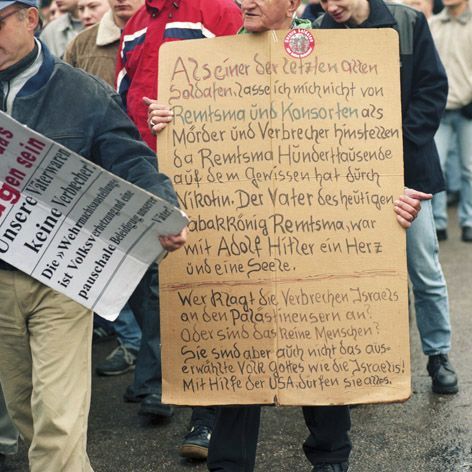 as
gen sein
Unsere Väter waren
keine Verbrecher!
Die »Wehrmachtsausstellung«
ist Volksverhetzung und eine
pauschale Beleidigung unserer
Väter!
Als einer der letzten alten
Soldaten, lasse ich mich nicht von
Remtsma und Konsorten als
Mörder und Verbrecher hinstellen
da Remtsma Hunderttausende
auf dem Gewissen hat durch
Nikotin. Der Vater des heutigen
Tabakkönig Remtsma, war
mit Adolf Hitler ein Herz
und eine Seele.
Wer klagt die Verbrechen Israels
an den Palästinensern an?
Oder sind das keine Menschen?
Sie sind aber auch nicht das aus-
erwählte Volk Gottes wie die Israelis!
Mit Hilfe der USA, dürfen sie alles.